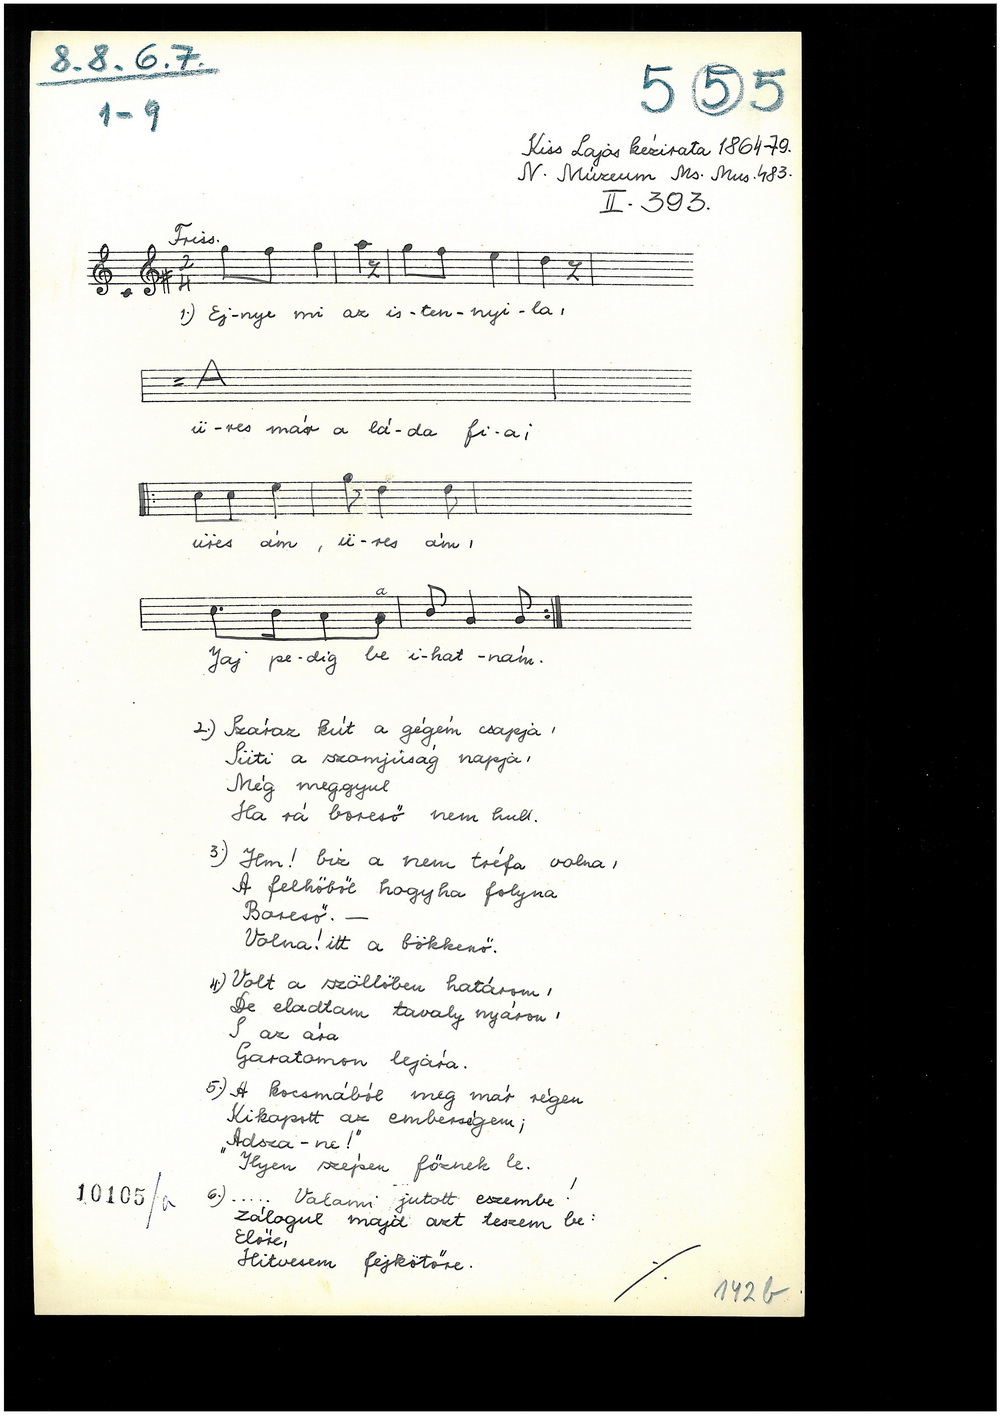 8.8.6.7.
1-9
5 5 5
Kiss Lajos kézirata 1864-79.
N. Múzeum Ms. Mus. 483.
II. 393.
Friss.
2
4
1.) Ej-nye mi az is-ten-nyi-la,
= A
ü-res már a lá-da fi-a;
üres ám, ü-res ám,
a
Jaj pe-dig be i-hat-nám.
2.) Száraz kút a gégém csapja,
Süti a szomjúság napja,
Még meggyul
Ha rá boreső nem hull.
3.) Hm! biz a nem tréfa volna,
A felhőből hogyha folyna
Boreső. —
Volna! itt a bökkenő.
4.) Volt a szöllőben határom,
De eladtam tavaly nyáron,
S az ára
Garatomon lejára.
5.) A kocsmából meg már régen
Kikapott az emberségem;
„Adsza-ne!"
"Ilyen szépen főznek le.
6.) ..... Valami jutott eszembe!
Zálogul majd azt teszem be:
Előre,
Hitvesem fejkötőre.
10105/a
./.
142 b